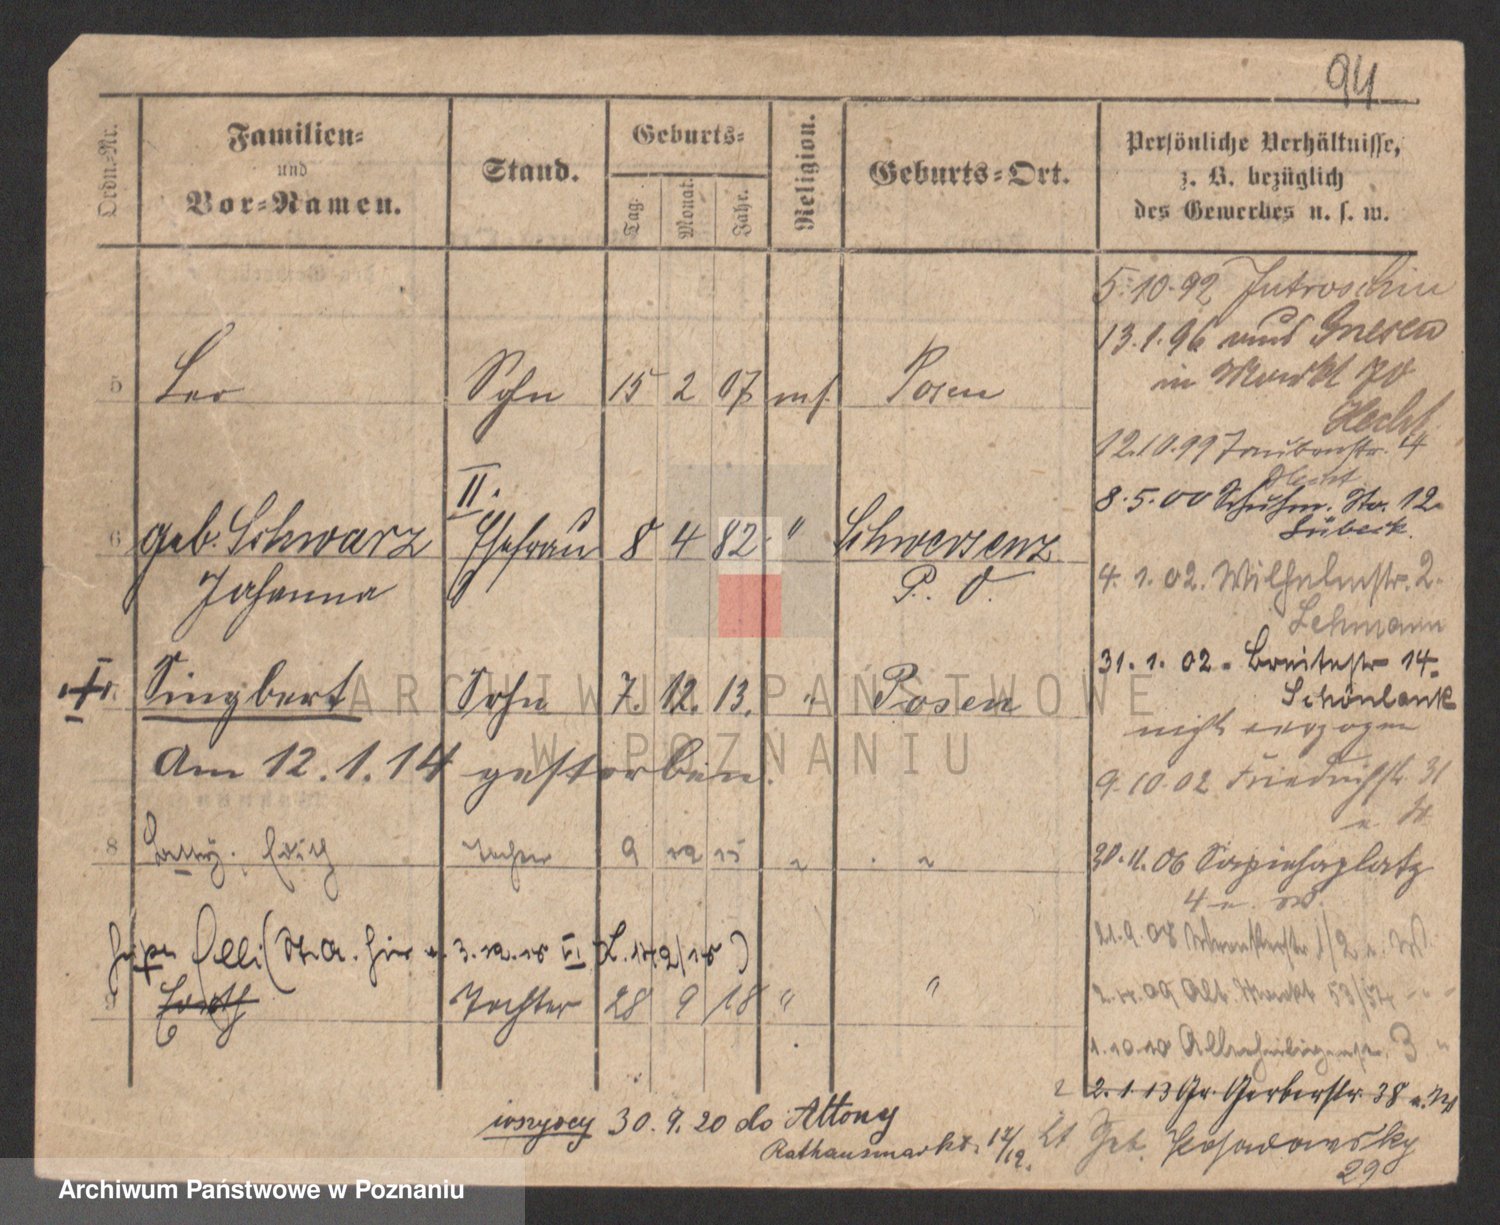 94
Ordn.-Nr.
Familien-
und
Vor-Namen.
Stand.
Geburts-
Tag.
Monat.
Jahr.
Religion.
Geburts-Ort.
Persönliche Verhältnisse,
z. B. bezüglich
des Gewerbes u. s. w.
5 Leo Sohn 15 2 07 mos. Posen
II.
6 geb. Schwarz Ehefrau 8 4 82 " Schwersenz
Johanna P. O.
Singbert Sohn 7. 12. 13. " Posen
Am 12.1.14 gestorben.
8 Tochter 9 12 15 " "
Elli (St. A. hier v. 3.12.18 VI L. 172/18)
9 Tochter 28 9 18 " "
5.10.92 Jutroschin
13.1.96 aus Gnesen
in Markt 70
Hecht
12.10.99 Taubenstr. 4
Hecht
8.5.00 Schuhm. Str. 12
Lübeck.
4.1.02. Wilhelmstr. 2.
Lehmann
31.1.02. Breitestr 14.
Schönlank
nicht verzogen
9.10.02 Friedrichstr 31
30.11.06 Sapiehaplatz
4 u. W.
21.9.08
2.4.09 Alt. Markt 53/54
1.10.10 Allerheiligenstr. 3 "
2.1.13 Gr. Gerberstr. 38 u. W
30.9.20 do Altony
Rathausmarkt. 17/19.
29
ARCHIWUM PAŃSTWOWE
W POZNANIU
Archiwum Państwowe w Poznaniu